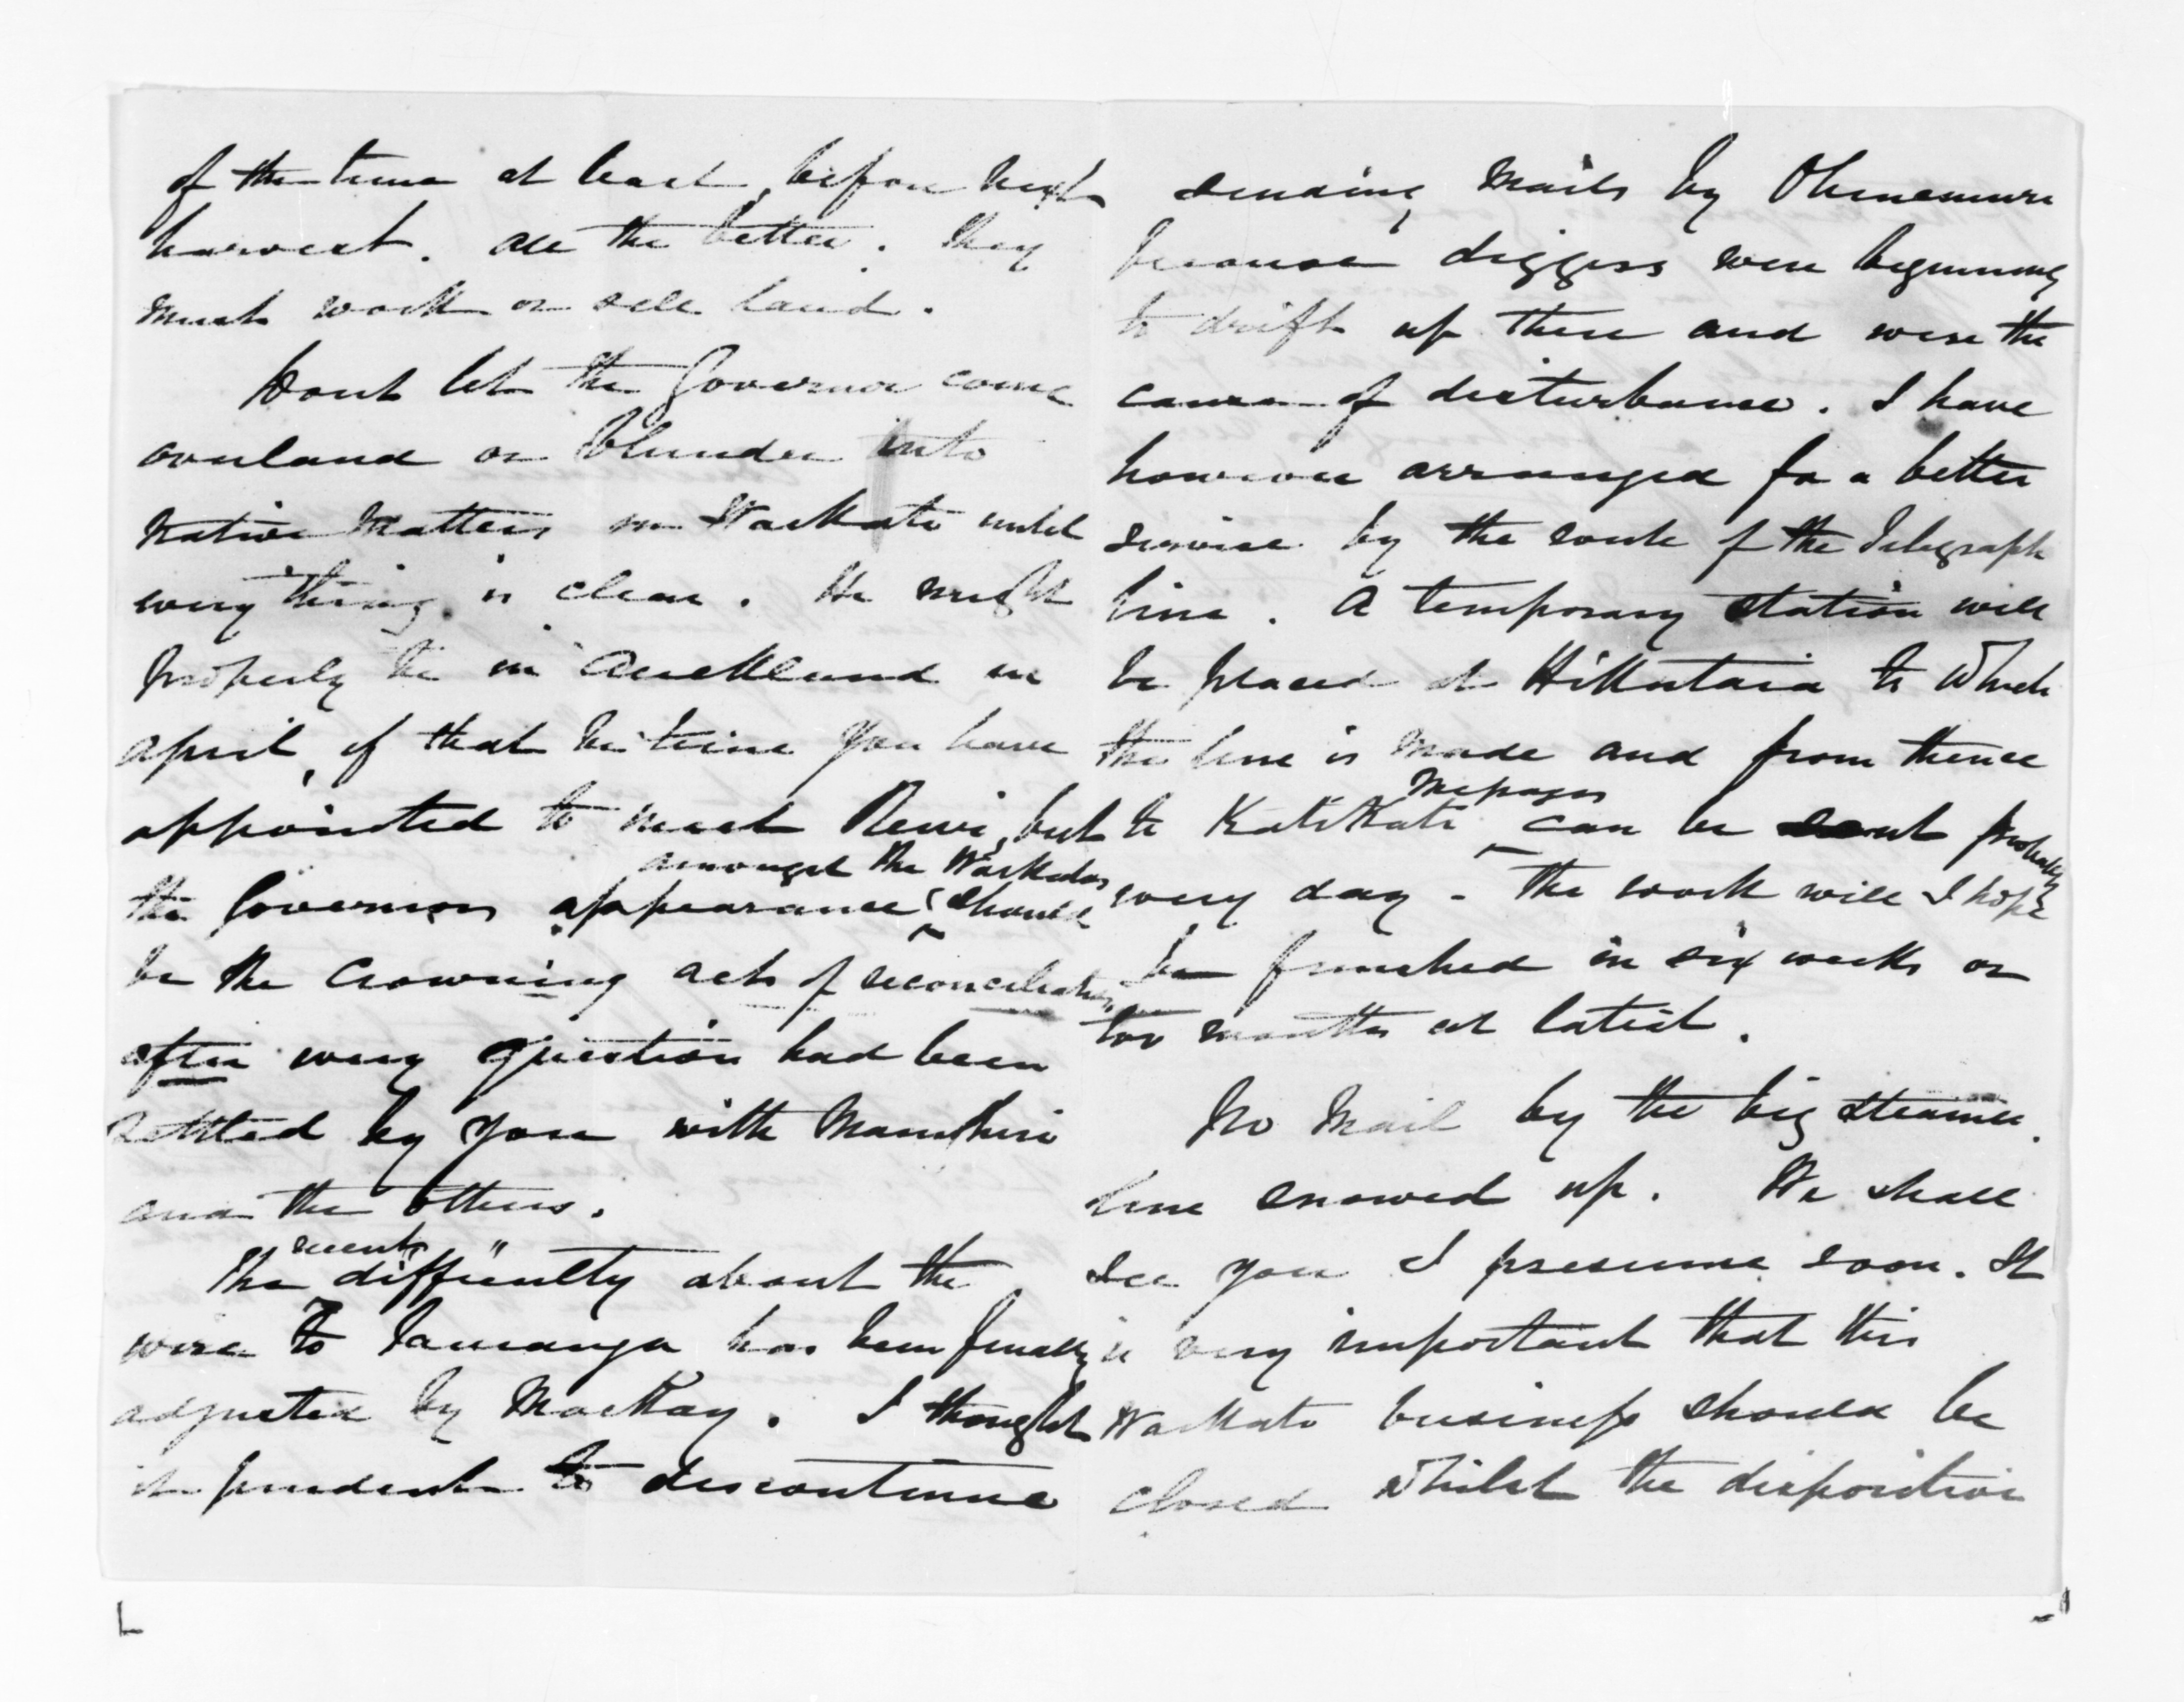 of the time at least, before next
harvest. All the better. They
must work or sell land.
Dont let the Governor come
overland or blunder into
Native Matters in Waikato until
every thing is clear. He might
properly be in Auckland in
April, if that be time you have
appointed to meet Rewi, but
the Governors appearance amongst the Waikatos should
be the crowning act of reconciliation
after every question had been
settled by you with Manuhiri
and the others.
The recent difficulty about the
wire to Tauranga has been finally
adjusted by MacKay. I thought
it prudent to discontinue
sending Mails by Ohinemuri
because diggers were beginning
to drift up there and were the
cause of disturbance. I have
however arranged for a better
service by the route of the Telegraph
line. A temporary station will
be placed at Hikutaia to which
the line is made and from thence
to KatiKati Messages can be sent probably
every day - The work will I hope
be finished in six weeks or
two months at latest.
No Mail by the big steamer.
line snowed up. We shall
see you I presume soon. It
is very important that this
Waikato business should be
closed whilst the disposition